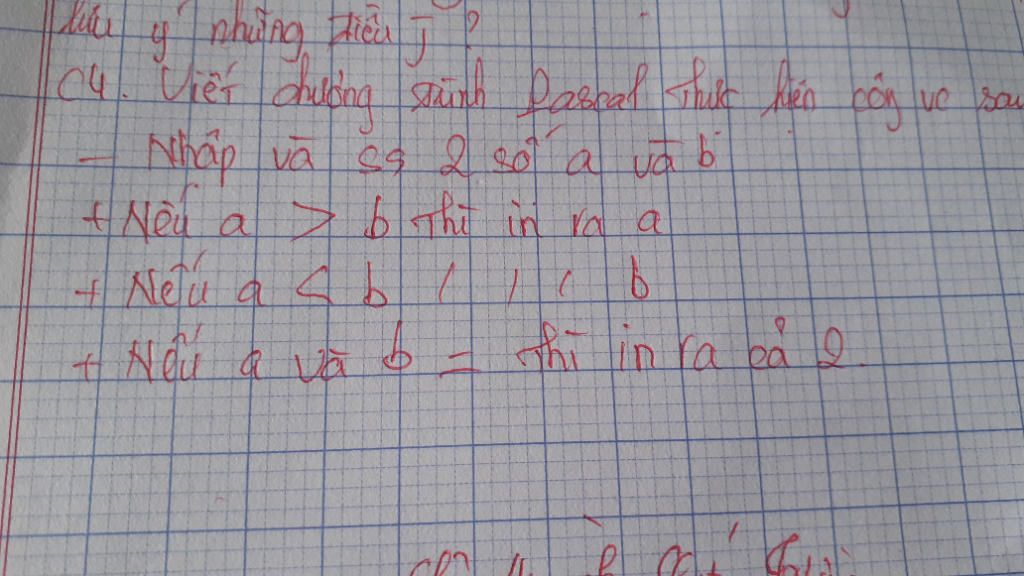 lưu ý những điều j ?
C4. Viết chương trình Pascal thực hiện công vc sau
- Nhập và ss 2 số a và b
+ Nếu a > b thì in ra a
+ Nếu a < b / / / b
+ Nếu a và b = thì in ra cả 2.